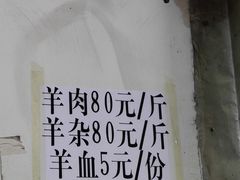 羊肉80元/斤
羊杂80元/斤
羊血5元/份